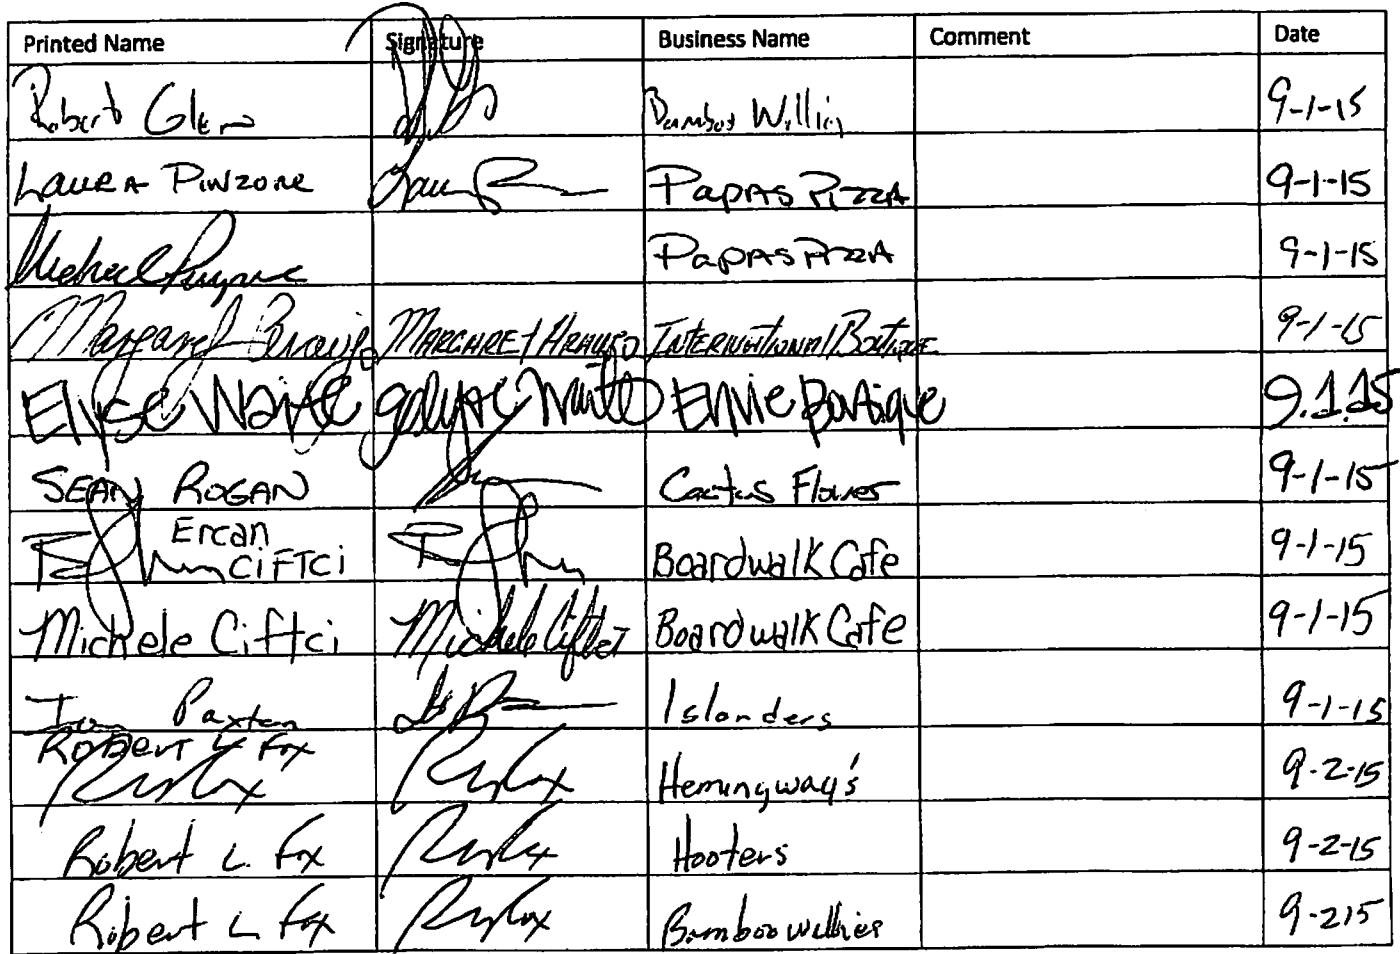 Printed Name Signature Business Name Comment Date
Robert Glenn Bamboo Willies 9-1-15
LAURA PINZONE PAPAS PIZZA 9-1-15
Michael PAPAS PIZZA 9-1-15
Margaret Araujo MARGARET ARAUJO INTERNATIONAL BOUTIQUE 9-1-15
Elyse Waite Elyse Waite Envie Boutique 9.1.15
SEAN ROGAN Cactus Flower 9-1-15
Ercan
CiFTCi Boardwalk Cafe 9-1-15
Michele Ciftci Michele Ciftci Boardwalk Cafe 9-1-15
Paxton Islanders 9-1-15
Robert L Fox
Hemingway's 9-2-15
Robert L. Fox Hooters 9-2-15
Robert L Fox Bamboo willies 9-215